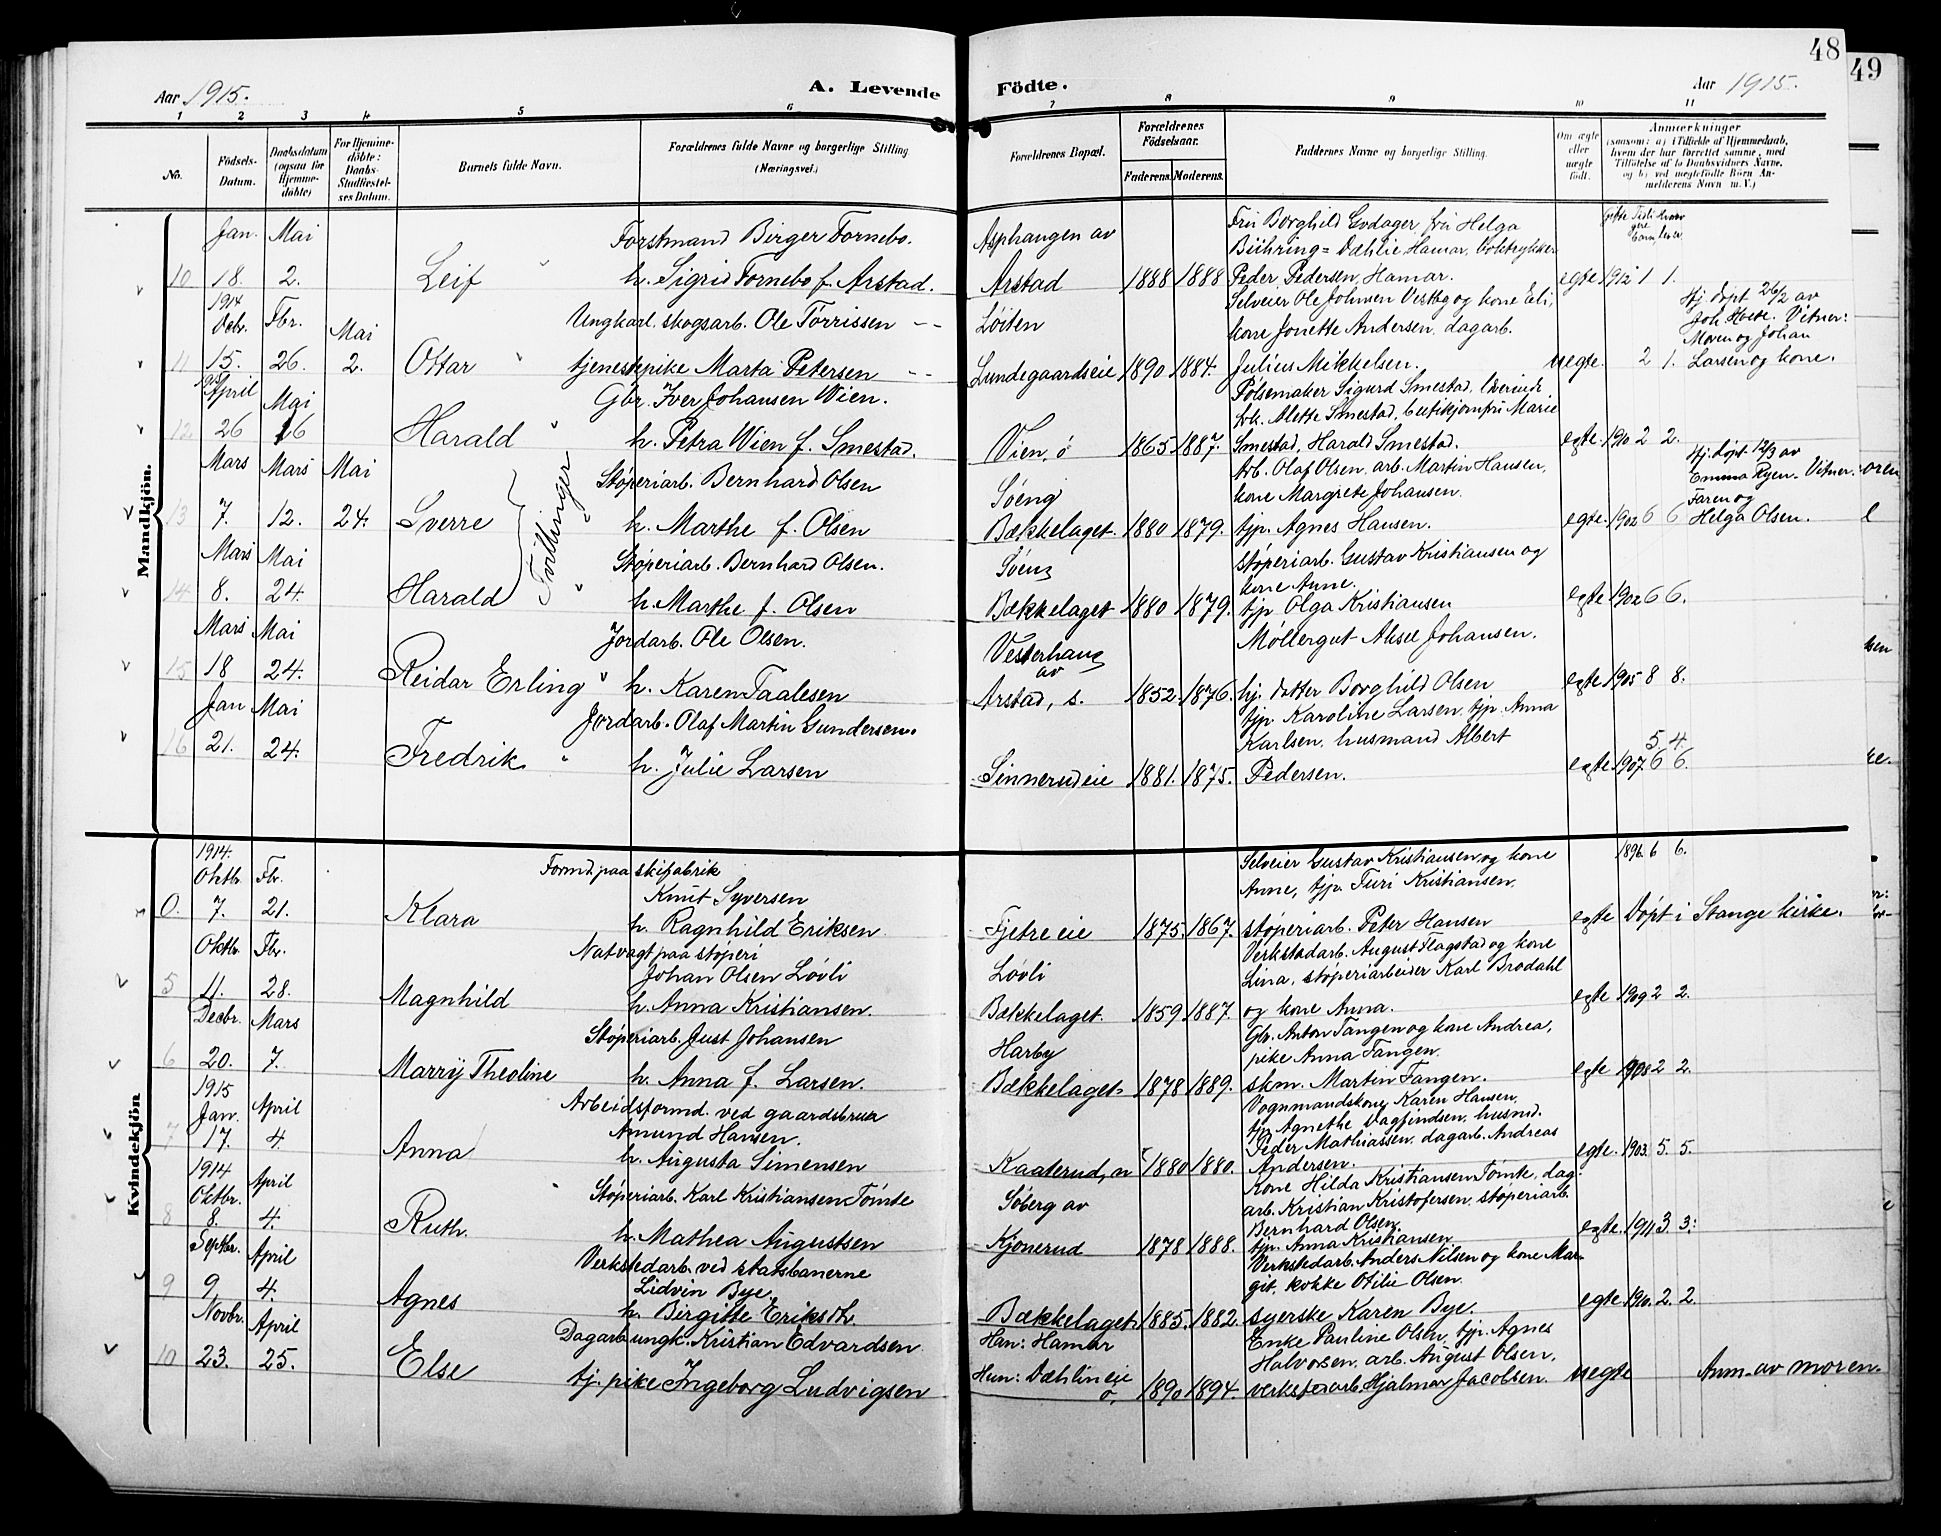 48
49
Aar 1915.
A. Levende Födte.
Aar 1915.
1 2 3 4 5 6 7 8 9 10 11
No.
Födsels-Datum.
Daabsdatum (ogsaa for Hjemmedöbte)
For Hjemmedöbte: Daabs-Stadfæstelses Datum.
Barnets fulde Navn.
Forældrenes fulde Navne og borgerlige Stilling (Næringsvei.)
Forældrenes Bopæl.
Forældrenes Födselsaar.
Faderens. Moderens.
Faddernes Navne og borgerlige Stilling.
Om ægte eller uægte födt.
Anmærkninger (saasom: a) i Tilfælde af Hjemmedaab, hvem der har forrettet samme, med Tilföielse af to Daabsvidners Navne, og b) ved uægtefödte Börn Anmelderens Navn m. V.)
Mandkjön.
Jan. Mai Forstmand Birger Fornebo. Asphaugen av Fru Borghild Godager, fru Helga
Bühring = Dæhlie Hamar, boktrykker
10 18. 2. Leif h. Sigrid Fornebo f. Arstad. Arstad 1888 1888 Peder Pedersen, Hamar. egte 1912 1 1.
1914 Decbr. Fbr. Mai Ungkarl, skogsarb. Ole Torrissen Löiten Selveier Ole Johnsen Vestby og kone Eli,
kone Jonette Andersen, dagarb. Hj. döpt 26/2 av
Joh. Hoete. Vitner:
Moren og Johan
11 15. 26. 2. Ottar tjenestepike Marta Petersen Lundegaardseie 1890 1884. Julius Mikkelsen. uegte. 2 1. Larsen og kone.
1915 April Mai Gbr. Iver Johansen Wien. Pölsemaker Sigurd Smestad,
Alette Smestad, butikjomfru Marie
12 26 16 Harald h. Petra Wien f. Smestad. Vien, ö 1865 1887. Smestad, Harald Smestad. egte. 1910 2 2.
Mars Mars Mai Stöperiarb. Bernhard Olsen Söeng Arb. Olaf Olsen, arb. Martin Hansen,
kone Margrete Johansen. Hj. döpt 12/3 av
Emma Ryen. Vitner:
Faren og
13 7. 12. 24. Sverre h. Marthe f. Olsen Bækkelaget. 1880 1879. tjp. Agnes Hansen. egte. 1902 6 6 Helga Olsen.
Tvillinger
Mars Mai Stöperiarb. Bernhard Olsen. Söeng stöperiarb. Gustav Kristiansen og
kone Anne.
14 8. 24. Harald h. Marthe f. Olsen Bækkelaget 1880 1879. tjp Olga Kristiansen egte 1902 6 6.
Mars Mai Jordarb. Ole Olsen. Vesterhaug av Möllergut Aksel Johansen.
15 18 24. Reidar Erling h. Karen Taalesen Arstad, s. 1852. 1876. hj. datter Borghild Olsen egte 1905 8 8.
Jan Mai Jordarb. Olaf Martin Gundersen. tjp. Karoline Larsen, tjp. Anna
Karlsen, husmand Albert 5 4.
16 21. 24. Fredrik h. Julie Larsen Sinnerudeie 1881. 1875. Pedersen. egte 1907. 6 6.
Kvindekjön
1914. Oktbr. Fbr. Formd. paa skifabrik Selveier Gustav Kristiansen og kone 1896. 6 6.
Knut Syversen Anne, tjp. Turi Kristiansen,
7. 21. Klara h. Ragnhild Eriksen Fjetre eie 1875. 1867. stöperiarb. Peter Hansen egte Döpt i Stange kirke.
Oktbr. Fbr. Natvagt paa stöperi Verkstedarb. August Flagstad og kone
Johan Olsen Lövli Lövli Lina, stöperiarbeider Karl Brodahl
5 11. 28. Magnhild h. Anna Kristiansen. Bækkelaget. 1859 1887. og kone Anna. egte 1909 2 2.
Decbr. Mars Stöperiarb. Just Johansen Harby Gbr. Anton Tangen og kone Andrea,
pike Anna Tangen.
6 20. 7. Marry Theoline h. Anna f. Larsen. Bækkelaget 1878 1889. skm. Martin Tangen. egte 1908 2 2.
1915 Jan. April Arbeidsformd. ved gaardsbruk Vognmandskone Karen Hansen,
Amund Hansen. tjp Agnethe Dagfindsen, husmd.
Peder Mathiassen, dagarb. Andreas
7 17. 4. Anna h. Augusta Simensen Kaaterud, n 1880 1880. Andersen. egte. 1903. 5. 5.
1914 Oktbr. April Stöperiarb. Karl Kristiansen Tömte Söberg av Kone Hilda Kristiansen Tömte, dag-
arb. Kristian Kristofersen, stöperiarb.
Bernhard Olsen.
8 8. 4. Ruth. h. Mathea Augustsen Kjonerud 1878 1888. tjp. Anna Kristiansen egte. 1911 3 3.
Septbr. April Verkstedarb. ved statsbanerne Verkstedarb. Anders Nilsen og kone Mar-
Lidvin Bye. git, kokke Otilie Olsen.
9 9 4. Agnes h. Birgitte Eriksdt. Bækkelaget 1885. 1882. syerske Karen Bye. egte 1910. 2. 2.
Novbr. April Dagarb. ungk. Kristian Edvardsen Han: Hamar Enke Pauline Olsen, tjp. Agnes
Halvorsen, arb. August Olsen,
10 23. 25. Else tj. pike Ingeborg Ludvigsen Hun: Dæhlin eie ö, 1890 1894. verkstedarb. Hjalmar Jacobsen. uegte Anm. av moren.